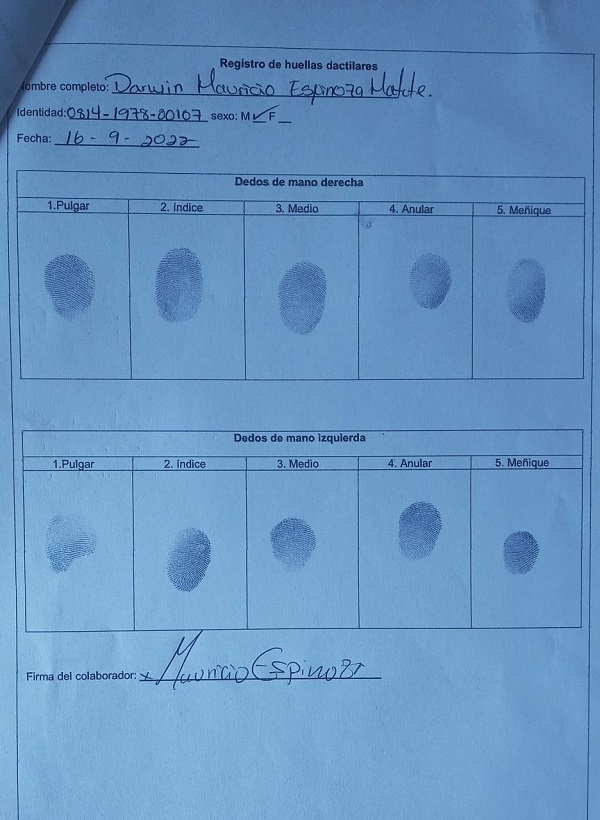 Registro de huellas dactilares
Nombre completo: Darwin Mauricio Espinoza Matute.
Identidad: 0814-1978-00107 sexo: M ✓ F _
Fecha: 16 - 9 - 2022
Dedos de mano derecha
1.Pulgar 2. Índice 3. Medio 4. Anular 5. Meñique
Dedos de mano izquierda
1.Pulgar 2. Índice 3. Medio 4. Anular 5. Meñique
Firma del colaborador: x Mauricio Espinoza